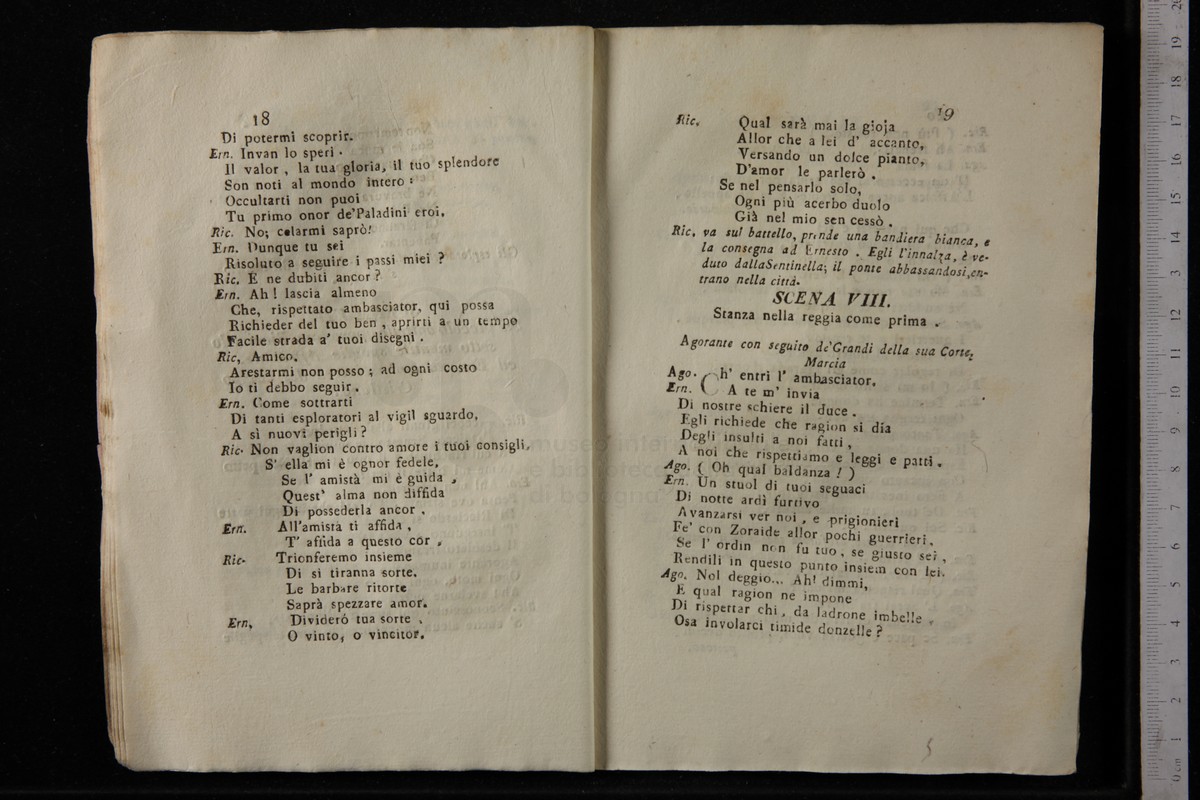 18
Di potermi scoprir.
Ern. Invan lo speri .
Il valor , la tua gloria, il tuo splendore
Son noti al mondo intero :
Occultarti non puoi
Tu primo onor de'Paladini eroi.
Ric. No; celarmi saprò!
Ern. Dunque tu sei
Risoluto a seguire i passi miei ?
Ric. E ne dubiti ancor ?
Ern. Ah ! lascia almeno
Che, rispettato ambasciator, qui possa
Richieder del tuo ben , aprirti a un tempo
Facile strada a' tuoi disegni .
Ric, Amico.
Arestarmi non posso ; ad ogni costo
Io ti debbo seguir .
Ern. Come sottrarti
Di tanti esploratori al vigil sguardo,
A sì nuovi perigli ?
Ric. Non vaglion contro amore i tuoi consigli,
S' ella mi è ognor fedele,
Se l' amistà mi è guida ,
Quest' alma non diffida
Di possederla ancor .
Ern. All'amistà ti affida ,
T' affida a questo cor ,
Ric. Trionferemo insieme
Di sì tiranna sorte.
Le barbare ritorte
Saprà spezzare amor.
Ern, Dividerò tua sorte ,
O vinto, o vincitor.
19
Ric. Qual sarà mai la gioja
Allor che a lei d' accanto,
Versando un dolce pianto,
D'amor le parlerò .
Se nel pensarlo solo,
Ogni più acerbo duolo
Già nel mio sen cessò .
Ric. va sul battello, prende una bandiera bianca, e
la consegna ad Ernesto . Egli l'innalza, è ve-
duto dallaSentinella; il ponte abbassandosi,en-
trano nella città.
SCENA VIII.
Stanza nella reggia come prima .
Agorante con seguito de'Grandi della sua Corte.
Marcia
Ago. Ch' entri l' ambasciator.
Ern. A te m' invia
Di nostre schiere il duce .
Egli richiede che ragion si dia
Degli insulti a noi fatti ,
A noi che rispettiamo e leggi e patti .
Ago. ( Oh qual baldanza ! )
Ern. Un stuol di tuoi seguaci
Di notte ardì furtivo
Avanzarsi ver noi , e prigionieri
Fe' con Zoraide allor pochi guerrieri.
Se l' ordin non fu tuo , se giusto sei ,
Rendili in questo punto insiem con lei.
Ago. Nol deggio... Ah! dimmi,
E qual ragion ne impone
Di rispettar chi, da ladrone imbelle ,
Osa involarci timide donzelle ?
5
museo inter
e biblioteca
di bologna